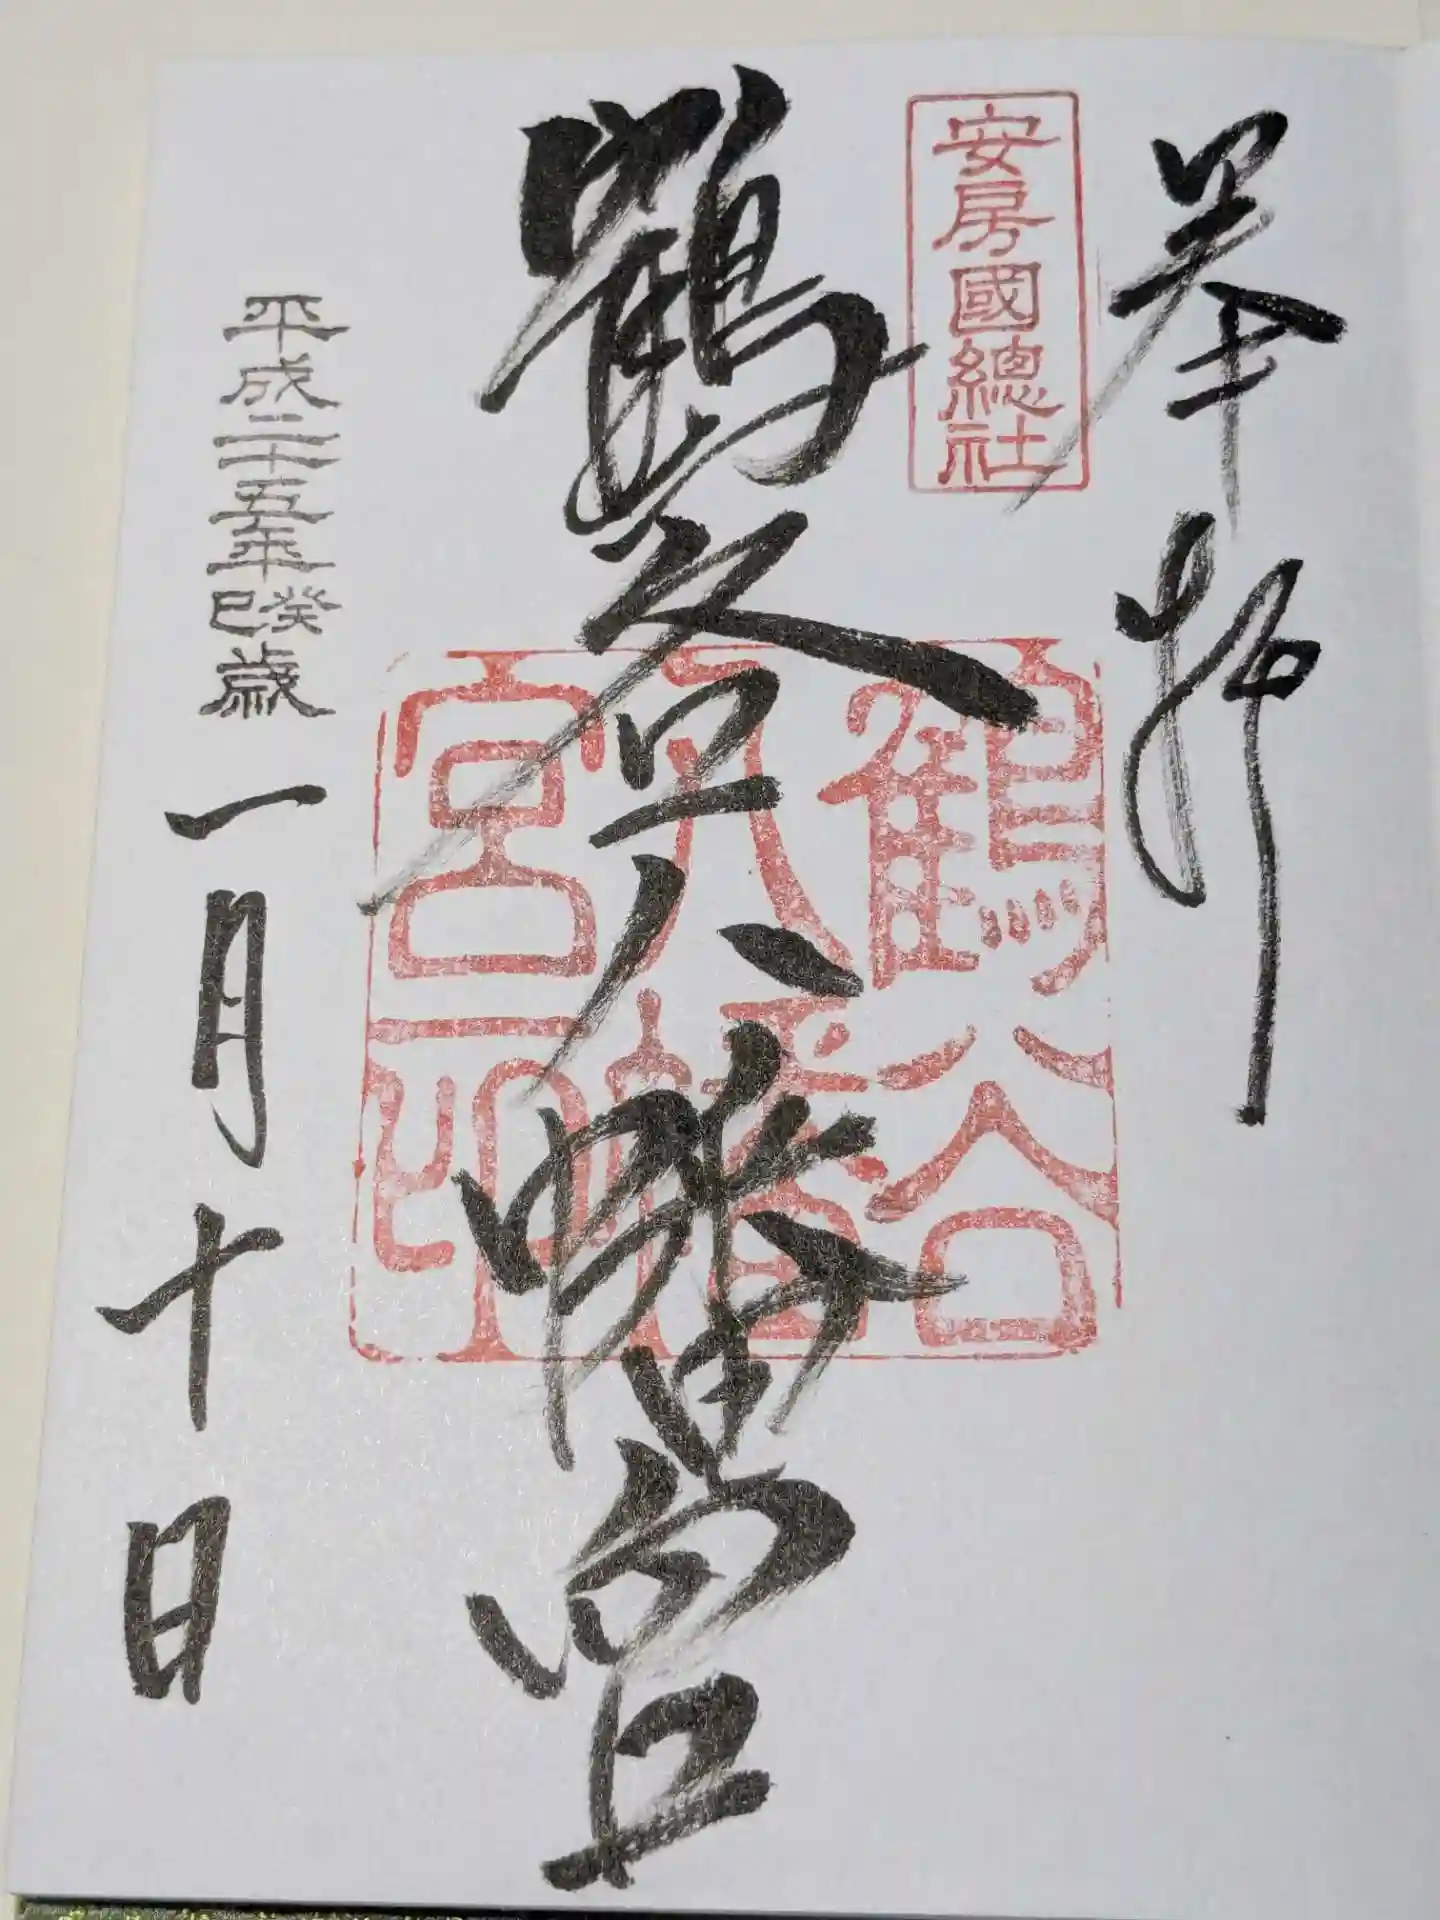 奉拝
安房國總社
鶴谷八幡宮
鶴谷
八幡
宮印
平成二十五年癸巳歳一月十日